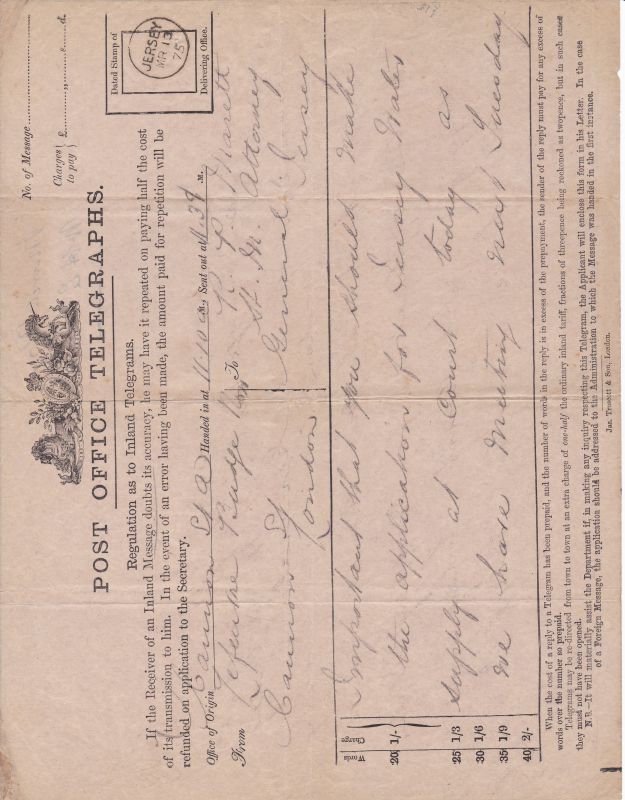 POST OFFICE TELEGRAPHS.
No. of Message
Charges to pay } £ s. d.
Dated Stamp of
Delivering Office.
JERSEY
MR 13
75
Regulation as to Inland Telegrams.
If the Receiver of an Inland Message doubts its accuracy, he may have it repeated on paying half the cost
of its transmission to him. In the event of an error having been made, the amount paid for repetition will be
refunded on application to the Secretary.
Office of Origin Cannon St Handed in at 11.10 a M., Sent out at 39 M.
From To
Cannon St
London
St
Attorney
General Jersey
Words Charge
20 1/-
25 1/3
30 1/6
35 1/9
40 2/-
Important that you should make
the application for Jersey Water
supply at Court today as
we have meeting next Tuesday
When the cost of a reply to a Telegram has been prepaid, and the number of words in the reply is in excess of the prepayment, the sender of the reply must pay for any excess of
words over the number so prepaid.
Telegrams may be re-directed from town to town at an extra charge of one-half the ordinary inland tariff, fractions of threepence being reckoned as twopence, but in such cases
they must not have been opened.
N.B.—It will materially assist the Department if, in making any inquiry respecting this Telegram, the Applicant will enclose this form in his Letter. In the case
of a Foreign Message, the application should be addressed to the Administration to which the Message was handed in the first instance.
Jas. Truscott & Son, London.